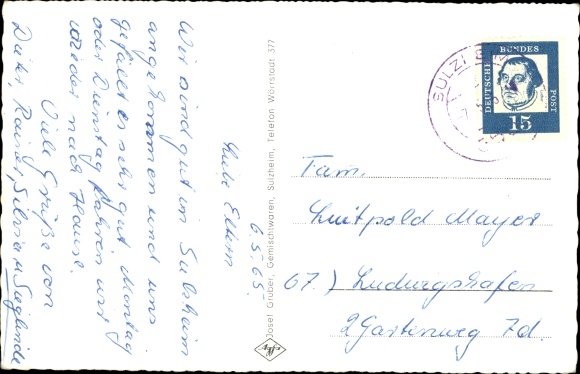 6.5.65.
Liebe Eltern
Wir sind gut in Sulzheim
angekommen und uns
gefällt es sehr gut. Montag
oder Dienstag fahren wir
wieder nach Hause.
Viele Grüße von
Dieter, Rainer, Silvia u. Sieglinde
Josef Gruber, Gemischtwaren, Sulzheim, Telefon Wörrstadt 377
SULZ
DEUTSCHE BUNDES POST
15
Fam.
Luitpold Mayer
67.) Ludwigshafen
2 Gartenweg 7d.